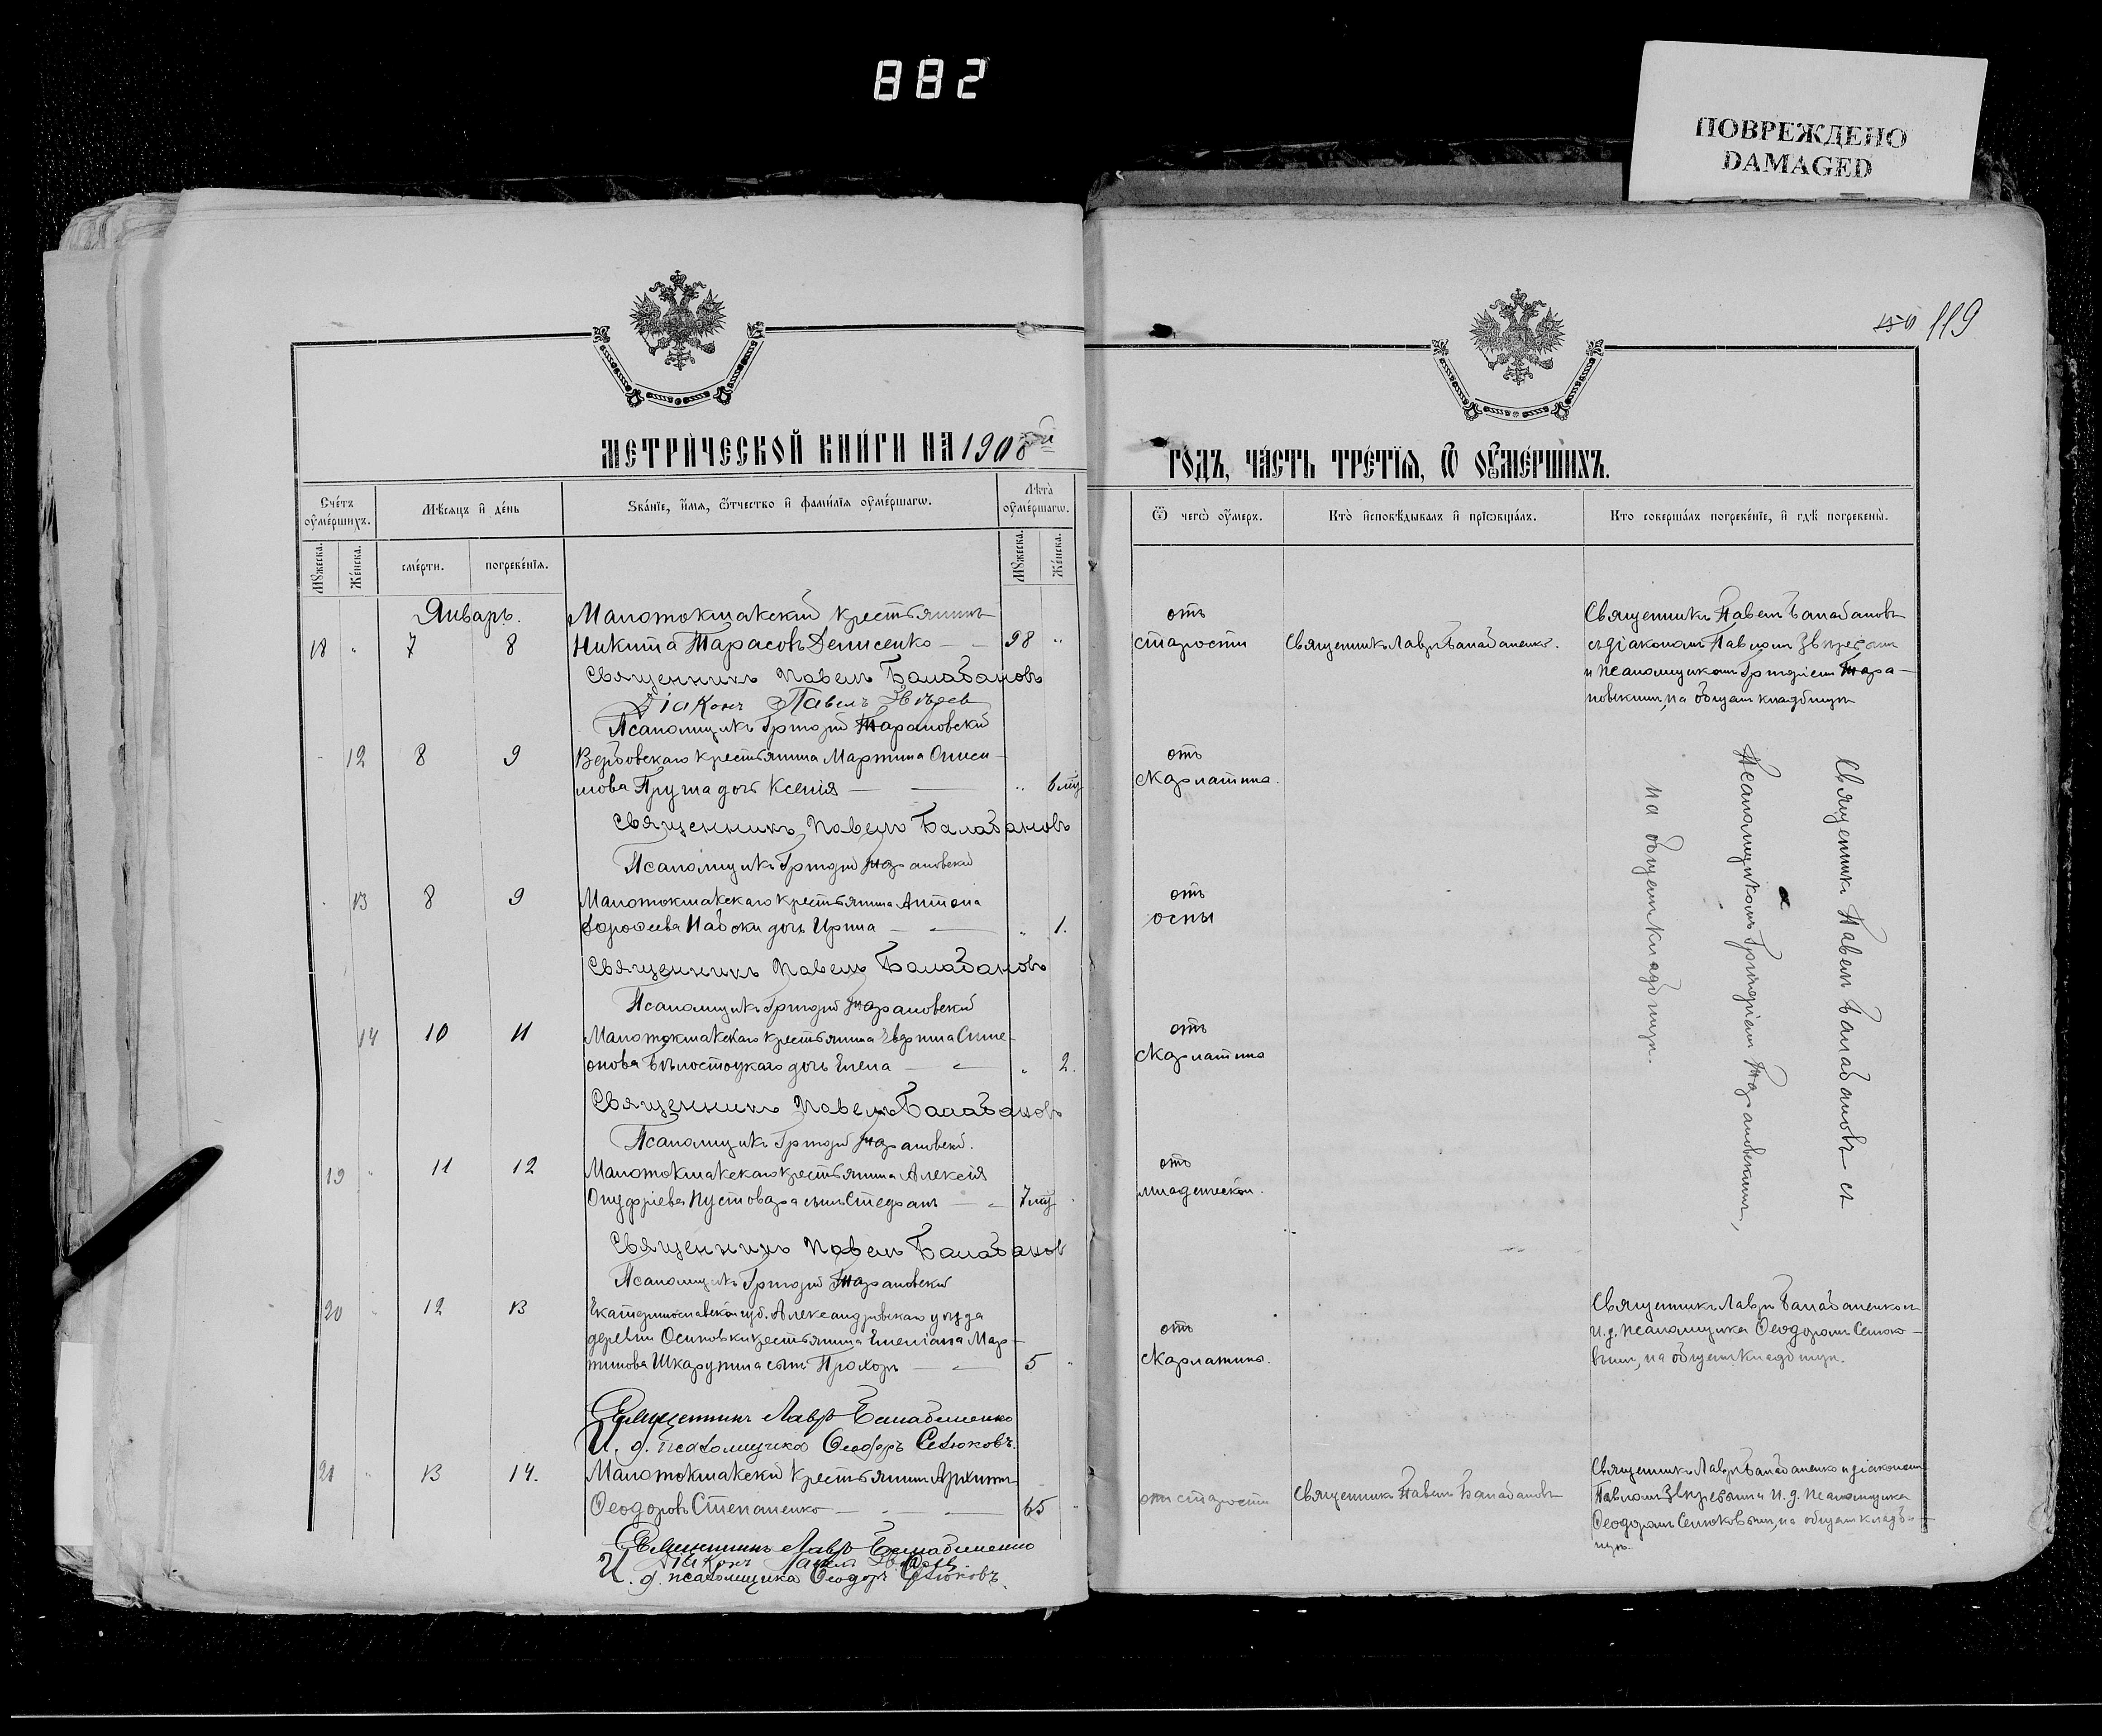 882
ПОВРЕЖДЕНО
DAMAGED
150 119
МЕТРИЧЕСКОЙ КНИГИ НА 1908й
ГОДЪ, ЧАСТЬ ТРЕТІЯ, Ѿ ОУМЕРШИХЪ.
Счетъ оумершихъ.
Мѣсяцъ и день
Званіе, имя, отчество и фамилія оумершагω.
Лѣта оумершагω.
Мужеска.
Женска.
смерти.
погребенія.
Мужеска.
Женска.
Ѿ чегω оумеръ.
Кто исповѣдывалъ и пріωбщалъ.
Кто совершалъ погребеніе, и гдѣ погребены.
Январь.
Малотокмакскій крестьянинъ
18 " 7 8 Никита Тарасовъ Денисенко — — 98 "
Священникъ Павелъ Балабановъ
Діаконъ Павелъ Звѣревъ
Псаломщикъ Григорій Тарановскій
отъ
старости
Священникъ Лавръ Балабаненко.
Священникъ Павелъ Балабановъ
съ діакономъ Павломъ Звѣревымъ
и псаломщикомъ Григоріемъ Тара-
новскимъ, на общемъ кладбищѣ
- 12 8 9 Вербовскаго крестьянина МартинаОниси-
мова дочь Ксенія — — " 6 мц
Священникъ Павелъ Балабановъ
Псаломщикъ Григорій Тарановскій
отъ
скарлатина.
" 13 8 9 Малотокмакскаго крестьянина Антона
Дорофеева Набоки дочь Ирина — — " 1.
Священникъ Павелъ Балабановъ
Псаломщикъ Григорій Тарановскій
отъ
оспы
14 10 11 Малотокмакскаго крестьянина Симе-
онова Бѣлостоцкаго дочь Елена — — " 2.
Священникъ Павелъ Балабановъ
Псаломщикъ Григорій Тарановскій.
отъ
скарлатина
19 " 11 12 Малотокмакскаго крестьянина Алексія
Онуфріева Пустовара сынъ Стефанъ — " 7 мц
Священникъ Павелъ Балабанов
Псаломщикъ Григорій Тарановскій
отъ
младенческой.
Священникъ Павелъ Балабановъ съ
псаломщикомъ Григоріемъ Тарановскимъ,
на общемъ кладбищѣ.
20 " 12 13 Екатеринославской губ. Александровскаго уѣзда
деревни Осиповки крестьянина Емеліана Мар-
тинова сынъ Прохоръ — — 5 "
Священникъ Лавръ Балабаненко
И. д. псаломщика Ѳеодоръ Сетюковъ.
отъ
скарлатины.
Священникъ Лавръ Балабаненко съ
и. д. псаломщика Ѳеодоромъ Сетюко-
вымъ, на общемъ кладбищѣ.
21 " 13 14. Малотокмакскій крестьянинъ
Ѳеодоровъ Степаненко — — 65 "
Священникъ Лавръ Балабаненко
Діаконъ Павелъ Звѣревъ
И. д. псаломщика Ѳеодоръ Сетюковъ.
отъ старости
Священникъ Павелъ Балабановъ
Священникъ Лавръ Балабаненко съ діакономъ
Павломъ Звѣревымъ и и. д. псаломщика
Ѳеодоромъ Сетюковымъ, на общемъ кладби-
щѣ.